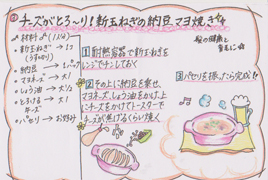 チーズがとろ〜り!新玉ねぎの納豆マヨ焼き
材料(1人分)
新玉ねぎ→1コ
(うすぎり)
納豆→1パック
マヨネーズ→大1
しょう油→大½
とろける→大1
チーズ
パセリ→お好み
1 耐熱容器で新玉ねぎを
レンジでチンしておく
2 その上に納豆を乗せ、
マヨネーズ、しょう油をかけ、上
にチーズをかけてトースターで
チーズが焦げるくらい焼く
髪の健康と
育毛に
3 パセリを振ったら完成!!